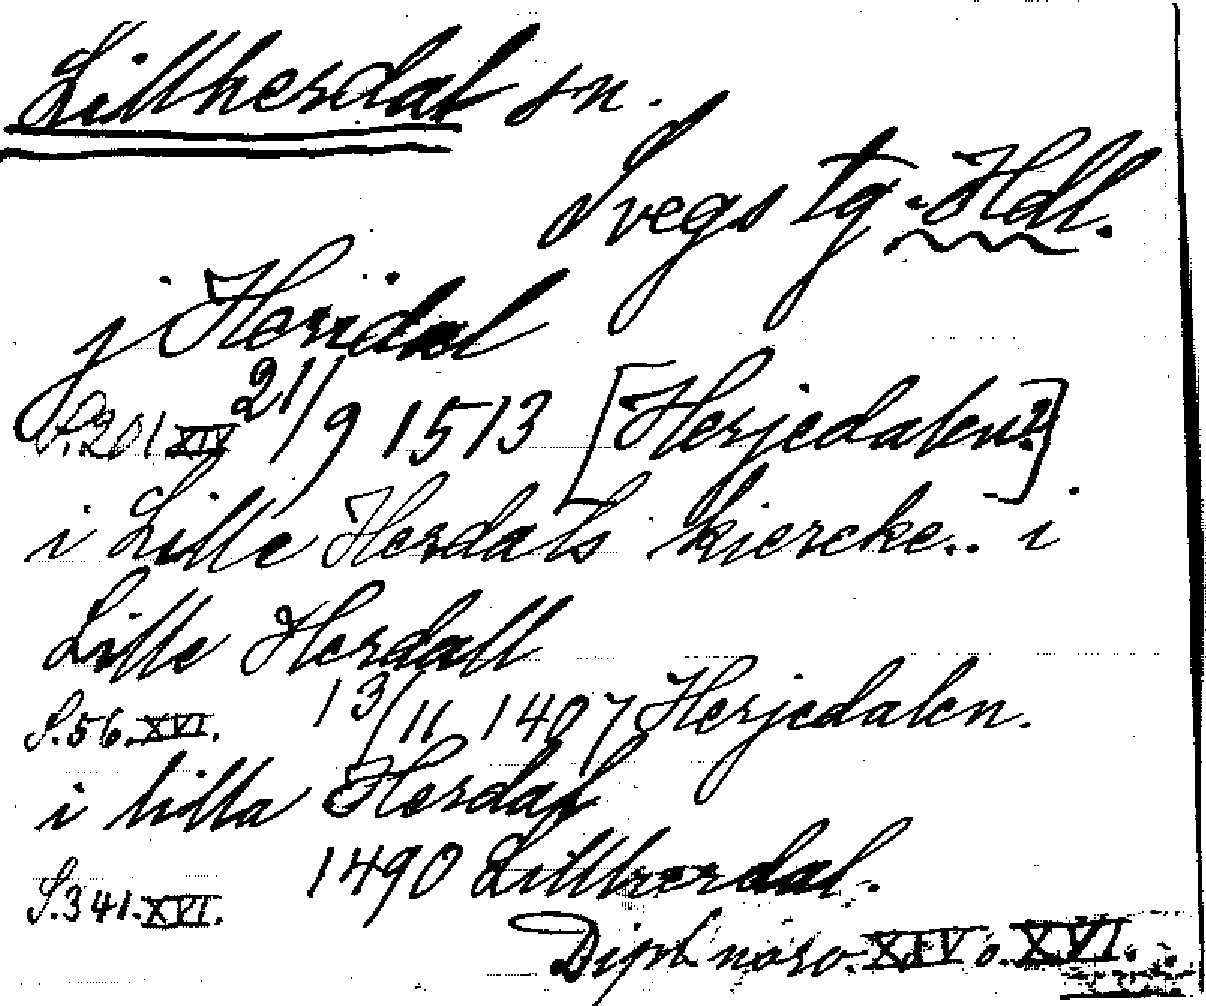 Lillherdal sn.
Svegs tg. Hdl.
j Heridal
S.201 XIV 21/9 1513 [Herjedalen?]
i Lille Herdals kiercke.. i
Lille Herdall
S.56.XVI. 13/11 1407 Herjedalen.
i lilla Herdal
S.341.XVI. 1490 Lillherdal.
Dipl. norv. XIV o. XVI.